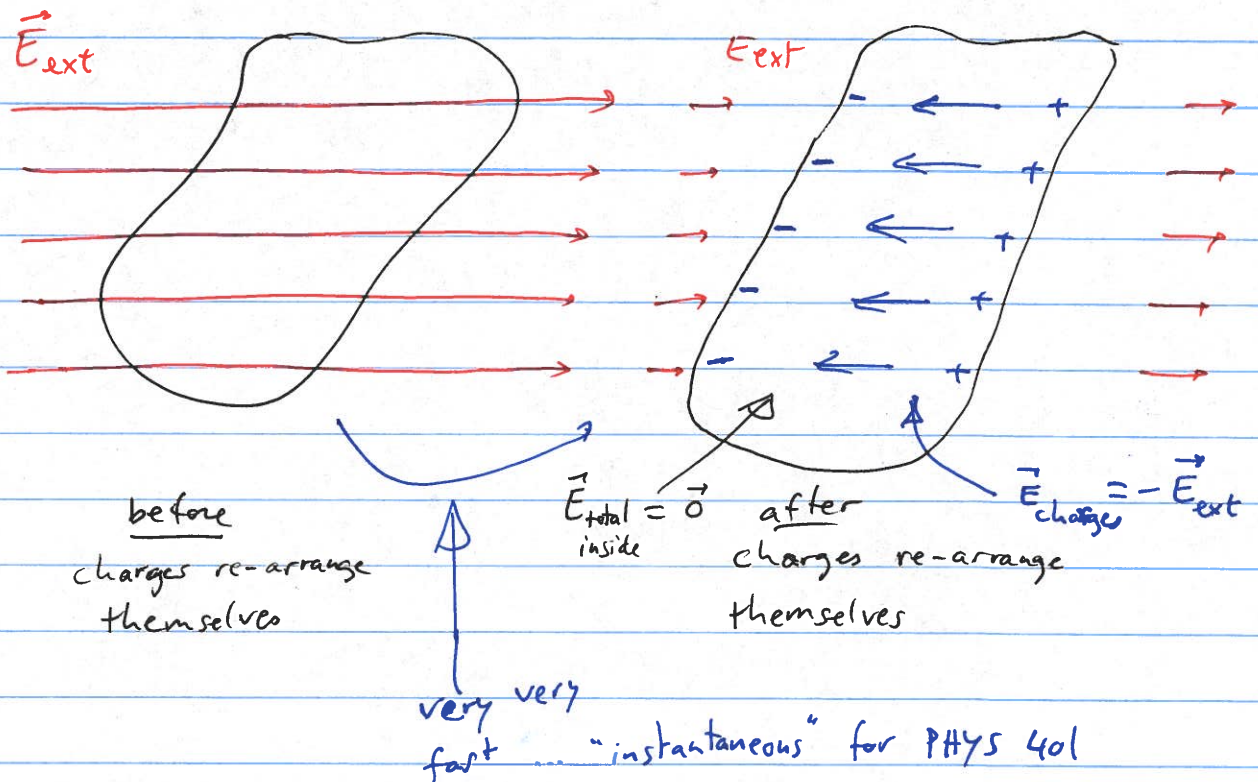 E⃗ext
Eext
- +
- +
- +
- +
- +
before
charges re-arrange
themselves
E⃗total inside = 0⃗
after
charges re-arrange
themselves
E⃗charges = - E⃗ext
very very
fast .... "instantaneous" for PHYS 401